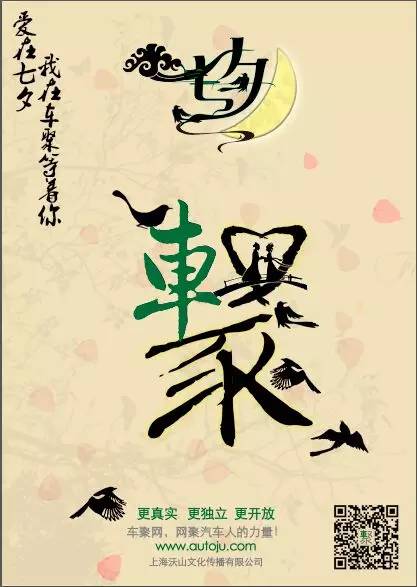 爱在七夕
我在车聚等着你
七夕
車聚
更真实 更独立 更开放
车聚网，网聚汽车人的力量！
www.autoju.com
上海沃山文化传播有限公司